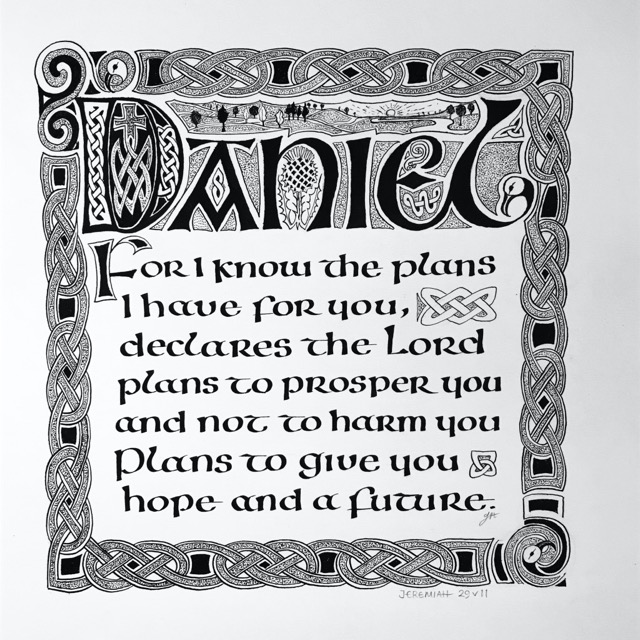 Daniel
For I know the plans
I have for you,
declares the Lord
plans to prosper you
and not to harm you
Plans to give you
hope and a future.
JEREMIAH 29 v 11